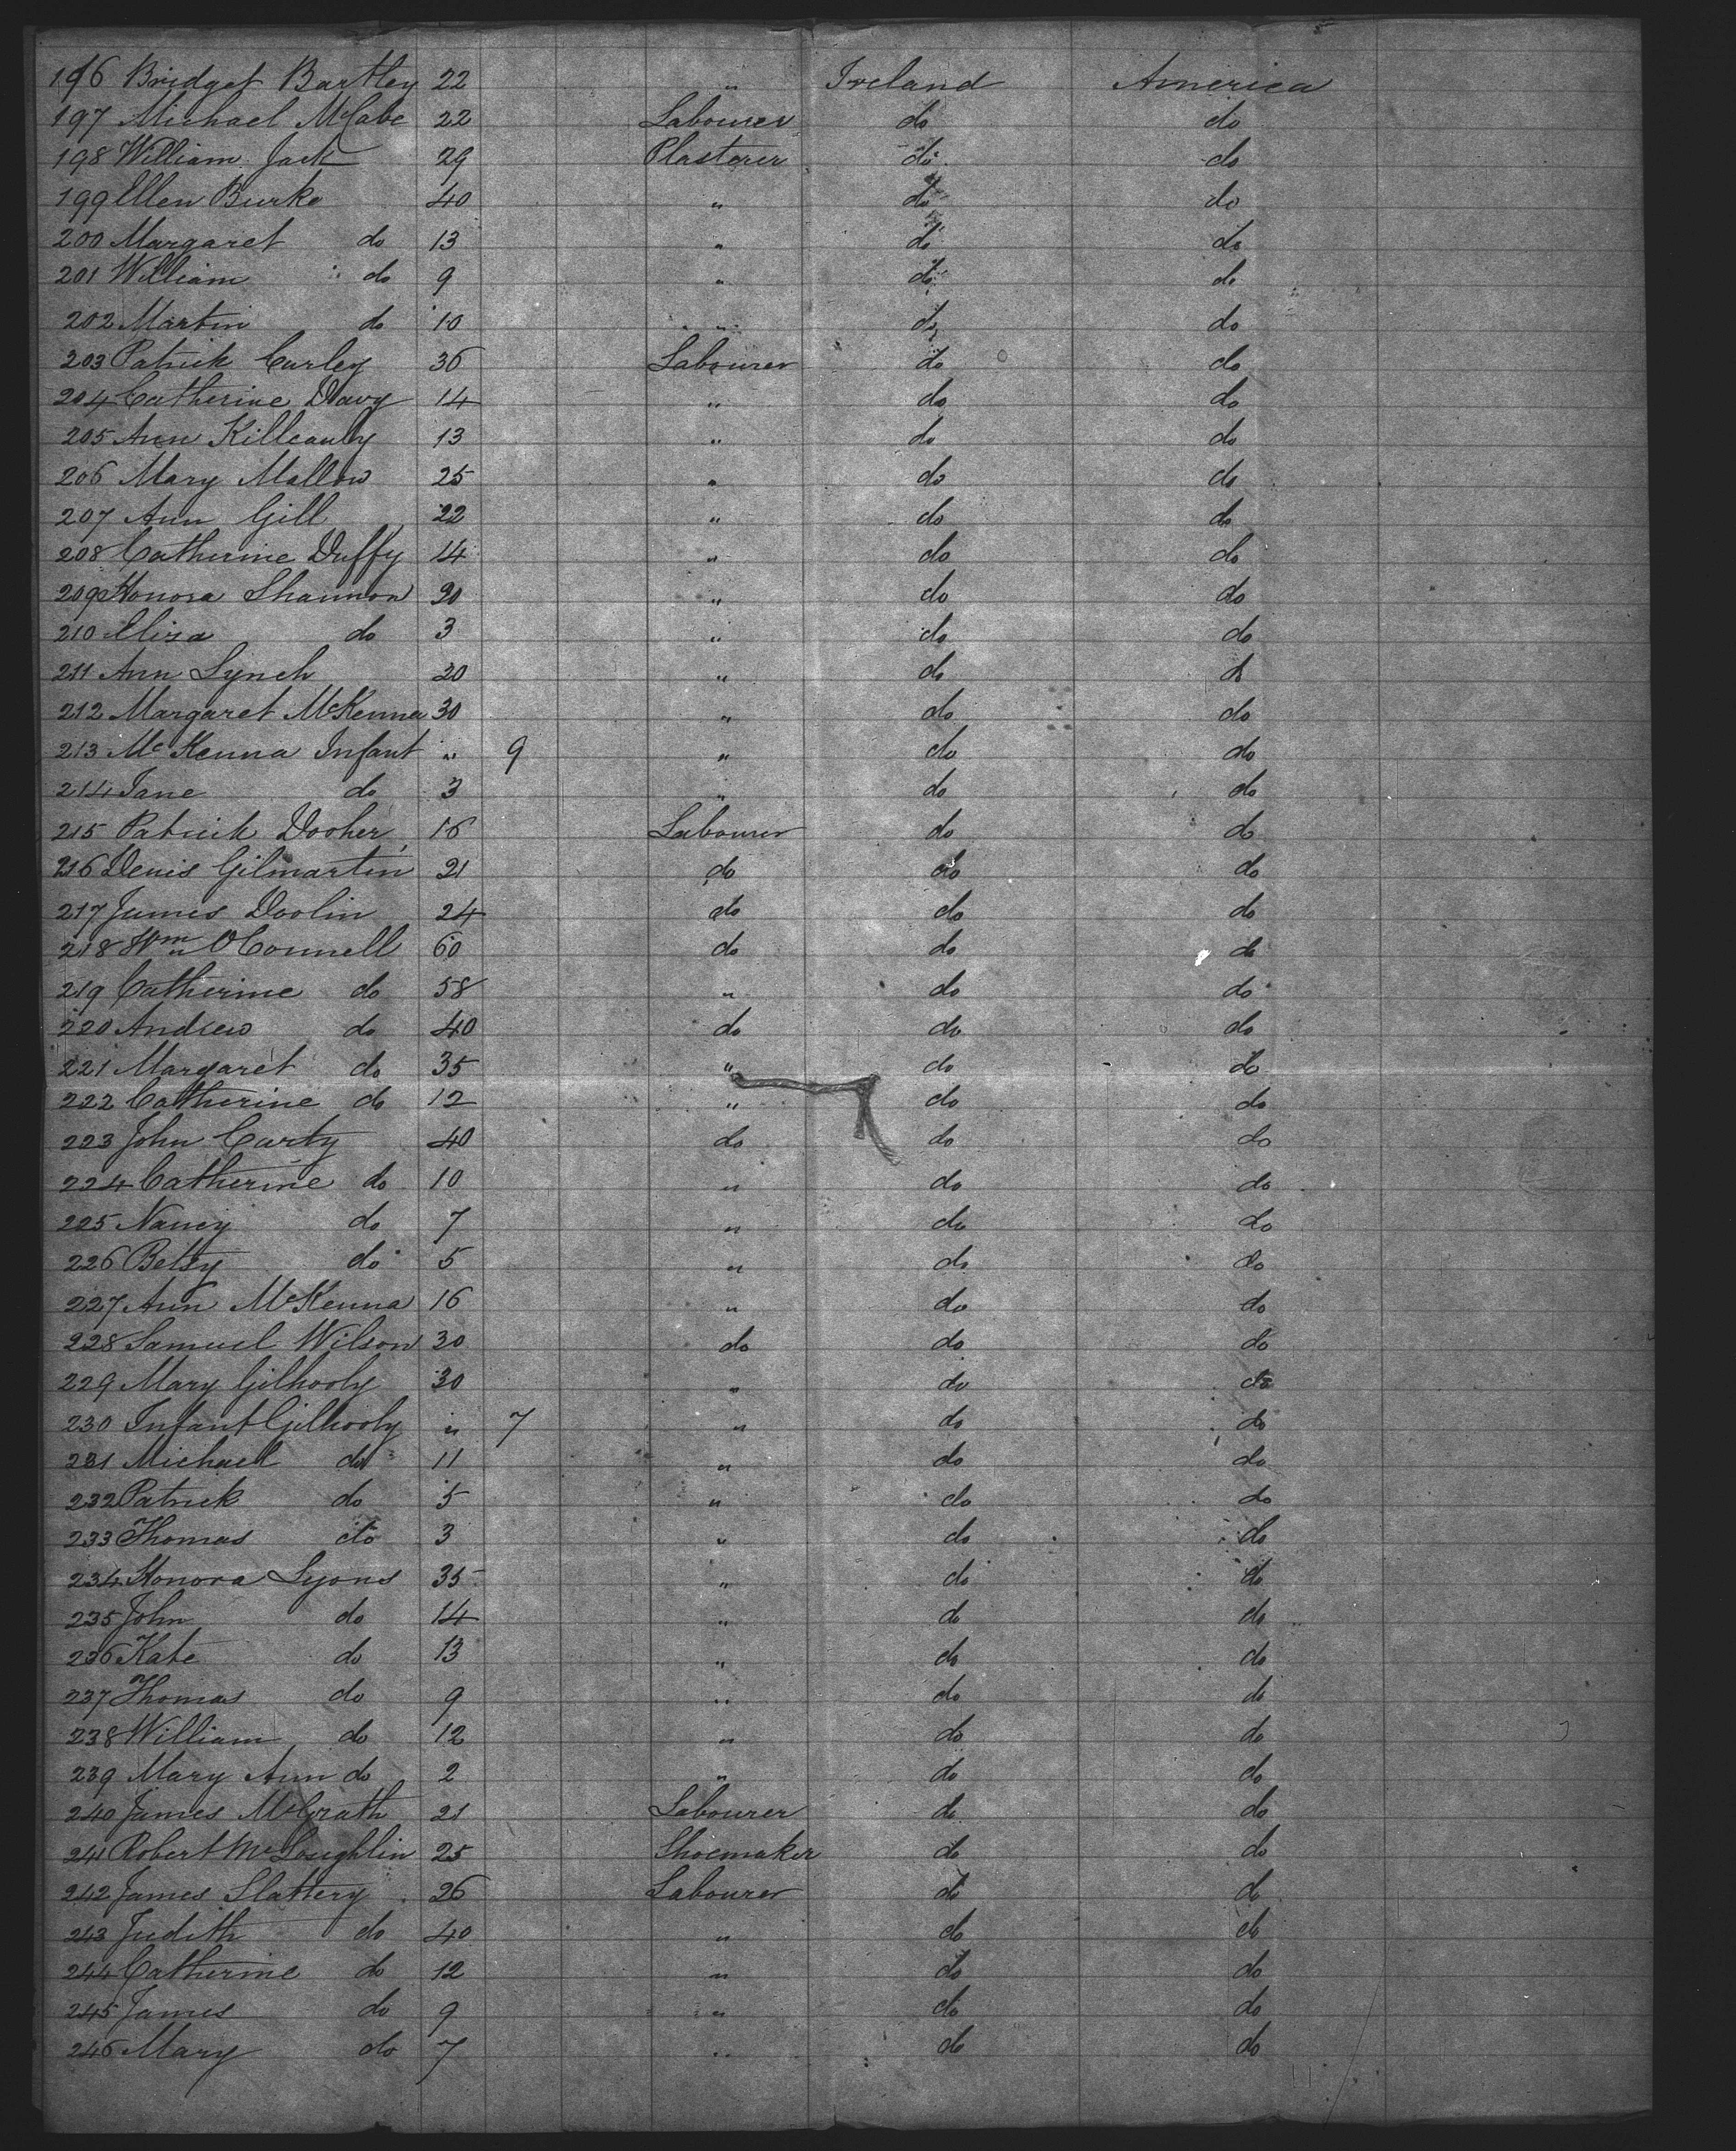 196 Bridget Bartley 22 " Ireland America
197 Michael McCabe 22 Labourer do do
198 William Jack 29 Plasterer do do
199 Ellen Burke 40 " do do
200 Margaret do 13 " do do
201 William do 9 " do do
202 Martin do 10 " do do
203 Patrick Curley 36 Labourer do do
204 Catherine Davy 14 " do do
205 Ann 13 " do do
206 Mary Mallow 25 " do do
207 Ann Gill 22 " do do
208 Catherine Duffy 14 " do do
209 Honora Shannon " do do
210 Eliza do 3 " do do
211 Ann Lynch 20 " do do
212 Margaret McKenna 30 " do do
213 McKenna Infant " 9 " do do
214 Jane do 3 " do do
215 Patrick Dooher 16 Labourer do do
216 Denis Gilmartin 21 do do do
217 James Doolin 24 do do do
218 Wm OConnell 60 do do do
219 Catherine do 58 " do do
220 Andrew do 40 do do do
221 Margaret do 35 " do do
222 Catherine do 12 " do do
223 John Carty 40 do do do
224 Catherine do 10 " do do
225 Nancy do 7 " do do
226 Betsy do 5 " do do
227 Ann McKenna 16 " do do
228 Samuel Wilson 30 do do do
229 Mary Gilhooly 30 " do do
230 Infant Gilhooly " 7 " do do
231 Michael do 11 " do do
232 Patrick do 5 " do do
233 Thomas do 3 " do do
234 Honora Lyons 35 " do do
235 John do 14 " do do
236 Kate do 13 " do do
237 Thomas do 9 " do do
238 William do 12 " do do
239 Mary Ann do 2 " do do
240 James McGrath 21 Labourer do do
241 Robert McLoughlin 25 Shoemaker do do
242 James Slattery 26 Labourer do do
243 Judith do 40 " do do
244 Catherine do 12 " do do
245 James do 9 " do do
246 Mary do 7 " do do